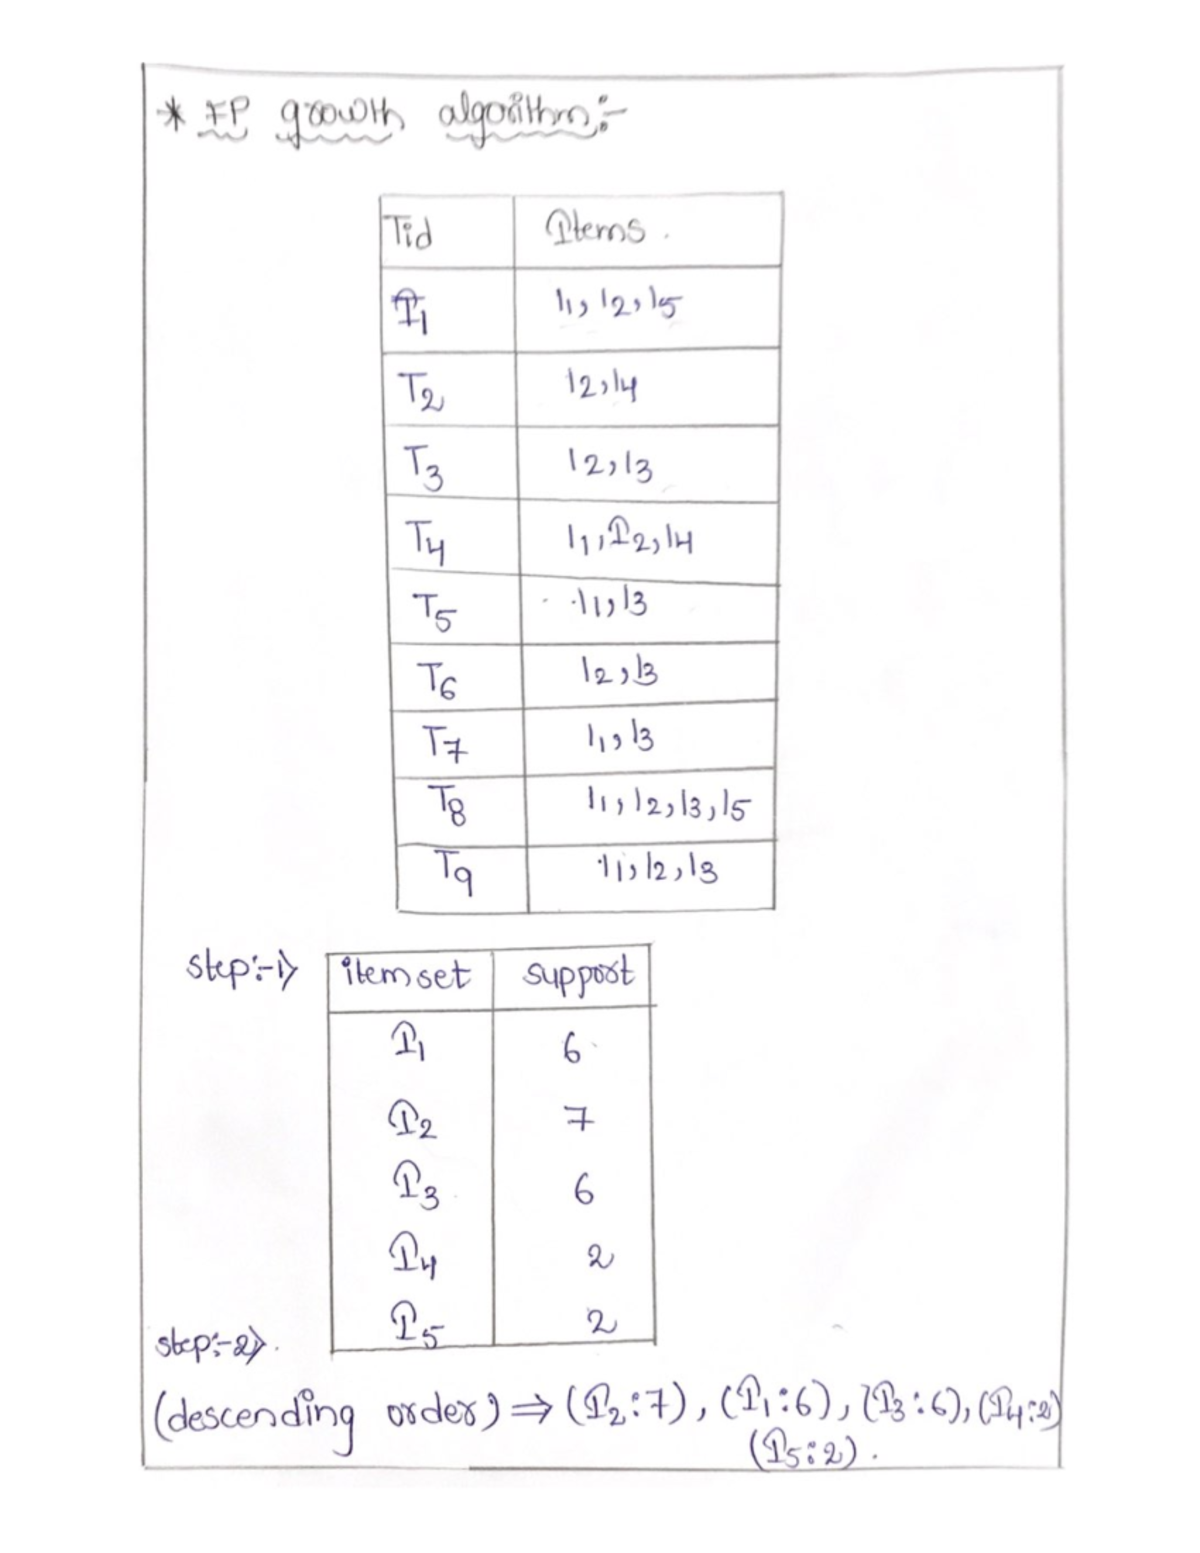 * FP growth algorithm:-
Tid Items.
T1 I1, I2, I5
T2 I2, I4
T3 I2, I3
T4 I1, I2, I4
T5 I1, I3
T6 I2, I3
T7 I1, I3
T8 I1, I2, I3, I5
T9 I1, I2, I3
step:-1> itemset support
I1 6
I2 7
I3 6
I4 2
I5 2
step:-2>.
(descending order) ⇒ (I2:7), (I1:6), (I3:6), (I4:2)
(I5:2).